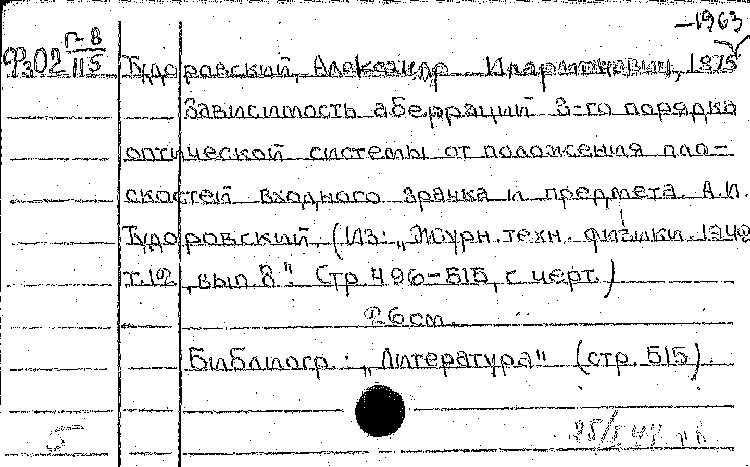 -1963
Фз02 Г-8/115
Тудоровский, Александр Иларионович, 1875
Зависимость аберраций 3-го порядка
оптической системы от положения пло-
скостей входного зрачка и предмета. А.И.
Тудоровский. (Из: „Журн. техн. физики. 1942
т.12, вып. 8". Стр. 496-515, с черт.)
26 см.
Библиогр.: „Литература" (стр. 515).
5